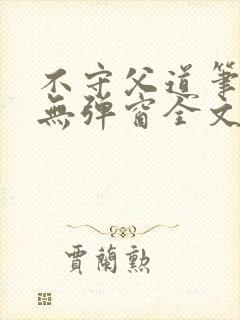 不守父道筆
無彈窗全文
賈蘭勲